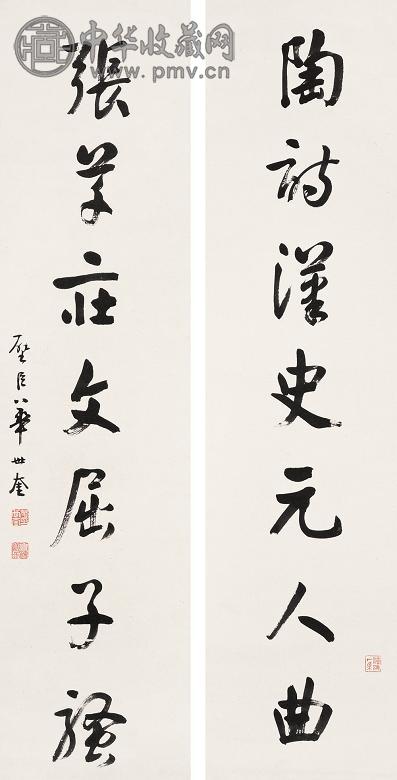 陶诗汉史元人曲
張草莊文屈子騷
壁臣華世奎
中华收藏网
www.pmv.cn